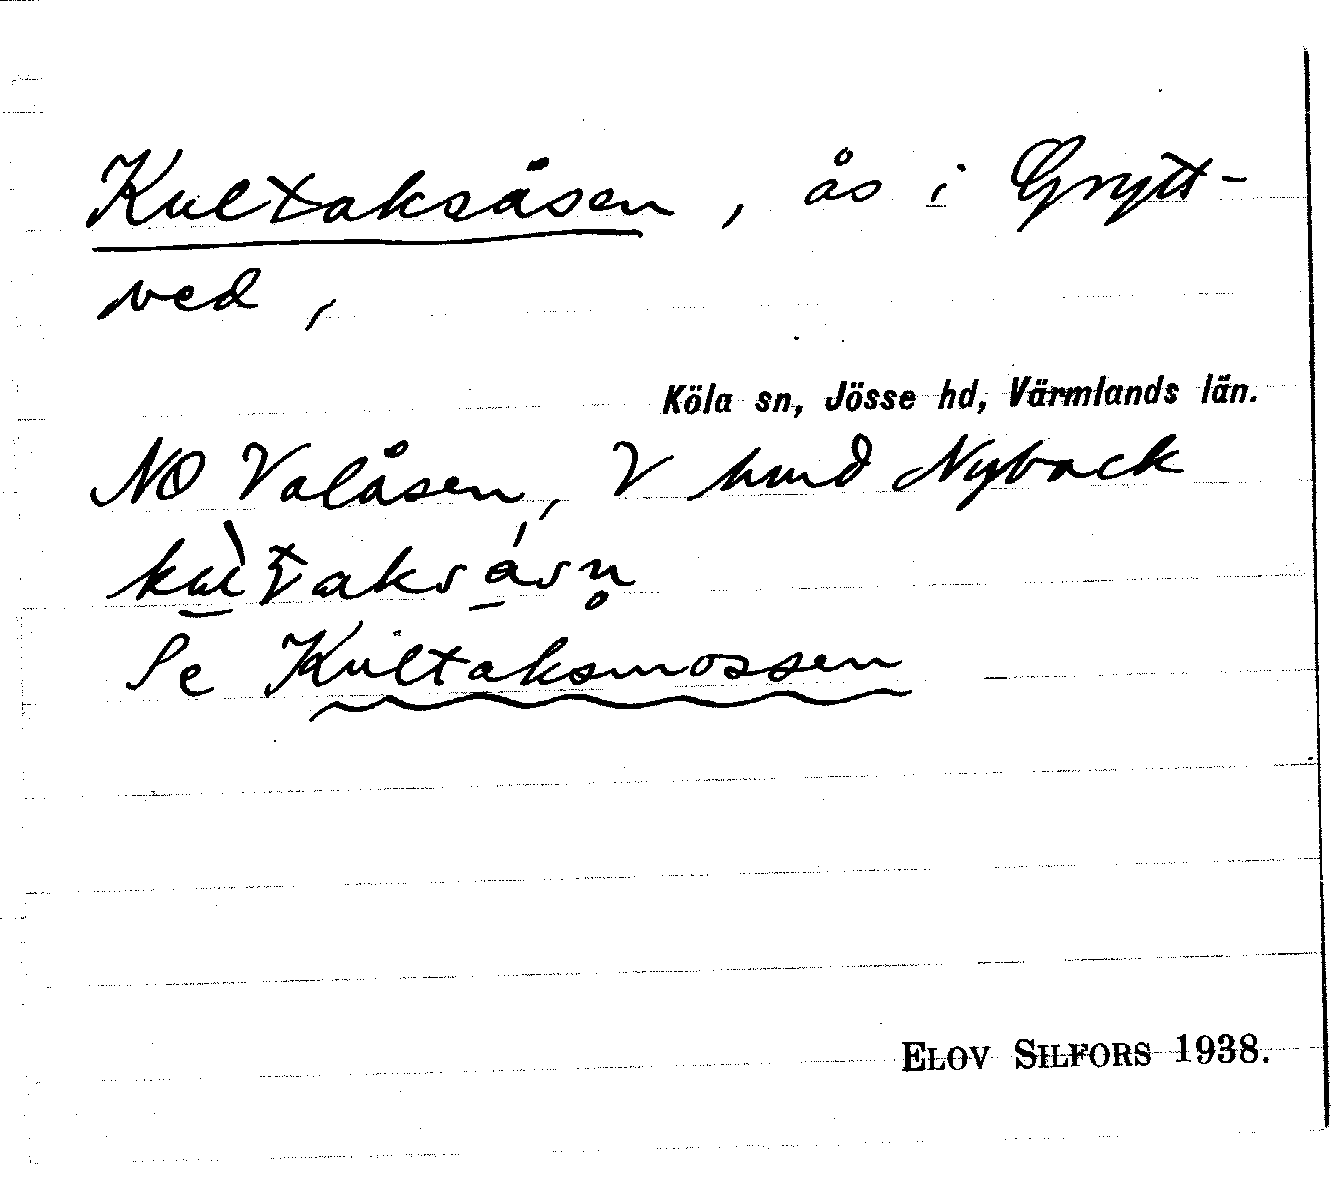 Kultaksåsen, ås i Grytt-
ved,
Köla sn, Jösse hd, Värmlands län.
NO Valåsen, V hmd Nyback
Se Kultaksmossen
ELOV SILFORS 1938.